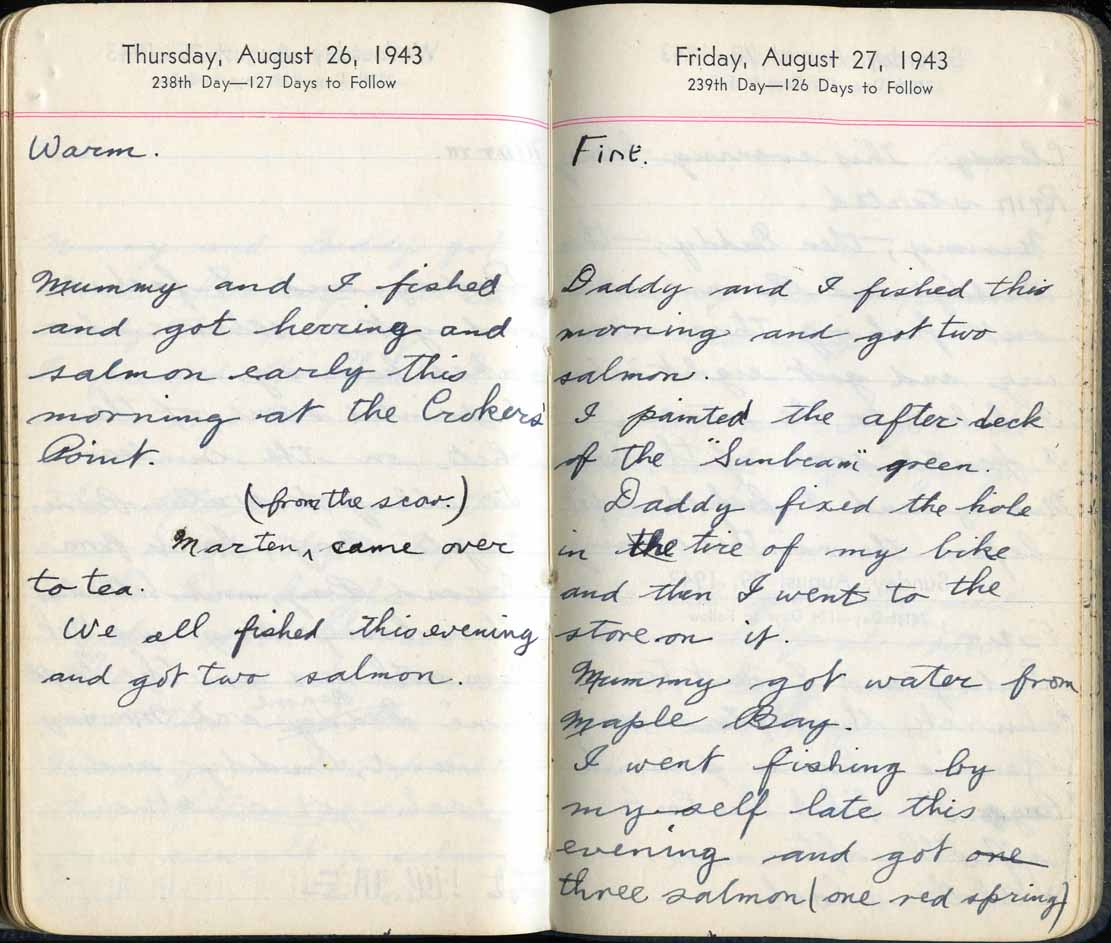 Thursday, August 26, 1943
238th Day—127 Days to Follow
Warm.
Mummy and I fished
and got herring and
salmon early this
morning at the Crokers'
Point.
(from the scow.)
Marten, came over
to tea.
We all fished this evening
and got two salmon.
Friday, August 27, 1943
239th Day—126 Days to Follow
Daddy and I fished this
morning and got two
salmon.
I painted the after deck
of the "Sunbeam" green.
Daddy fixed the hole
in the tire of my bike
and then I went to the
store on it.
Mummy got water from
Maple Bay.
I went fishing by
my-self late this
evening and got one
three salmon (one red spring)